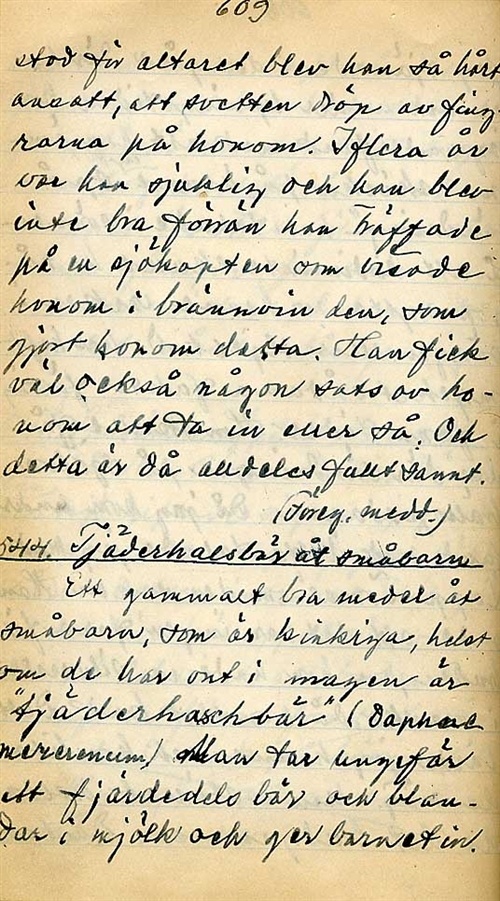 609
stod för altaret blev han så hårt
ansatt, att svetten dröp av fing-
rarna på honom. I flera år
var han sjuklig och han blev
inte bra förrän han träffade
på en sjökapten som visade
honom i brännvin den, som
gjort honom detta. Han fick
väl också någon sats av ho-
nom att ta in eller så. Och
detta är då alldeles fullt sannt.
(Föreg. medd.)
544. Tjäderhalsbär åt småbarn
Ett gammalt bra medel åt
småbarn, som är kinkiga, helst
om de har ont i magen är
"tjäderhaschbär" (Daphne
mezereum) Man tar ungefär
ett fjärdedels bär och blan-
dar i mjölk och ger barnet in.